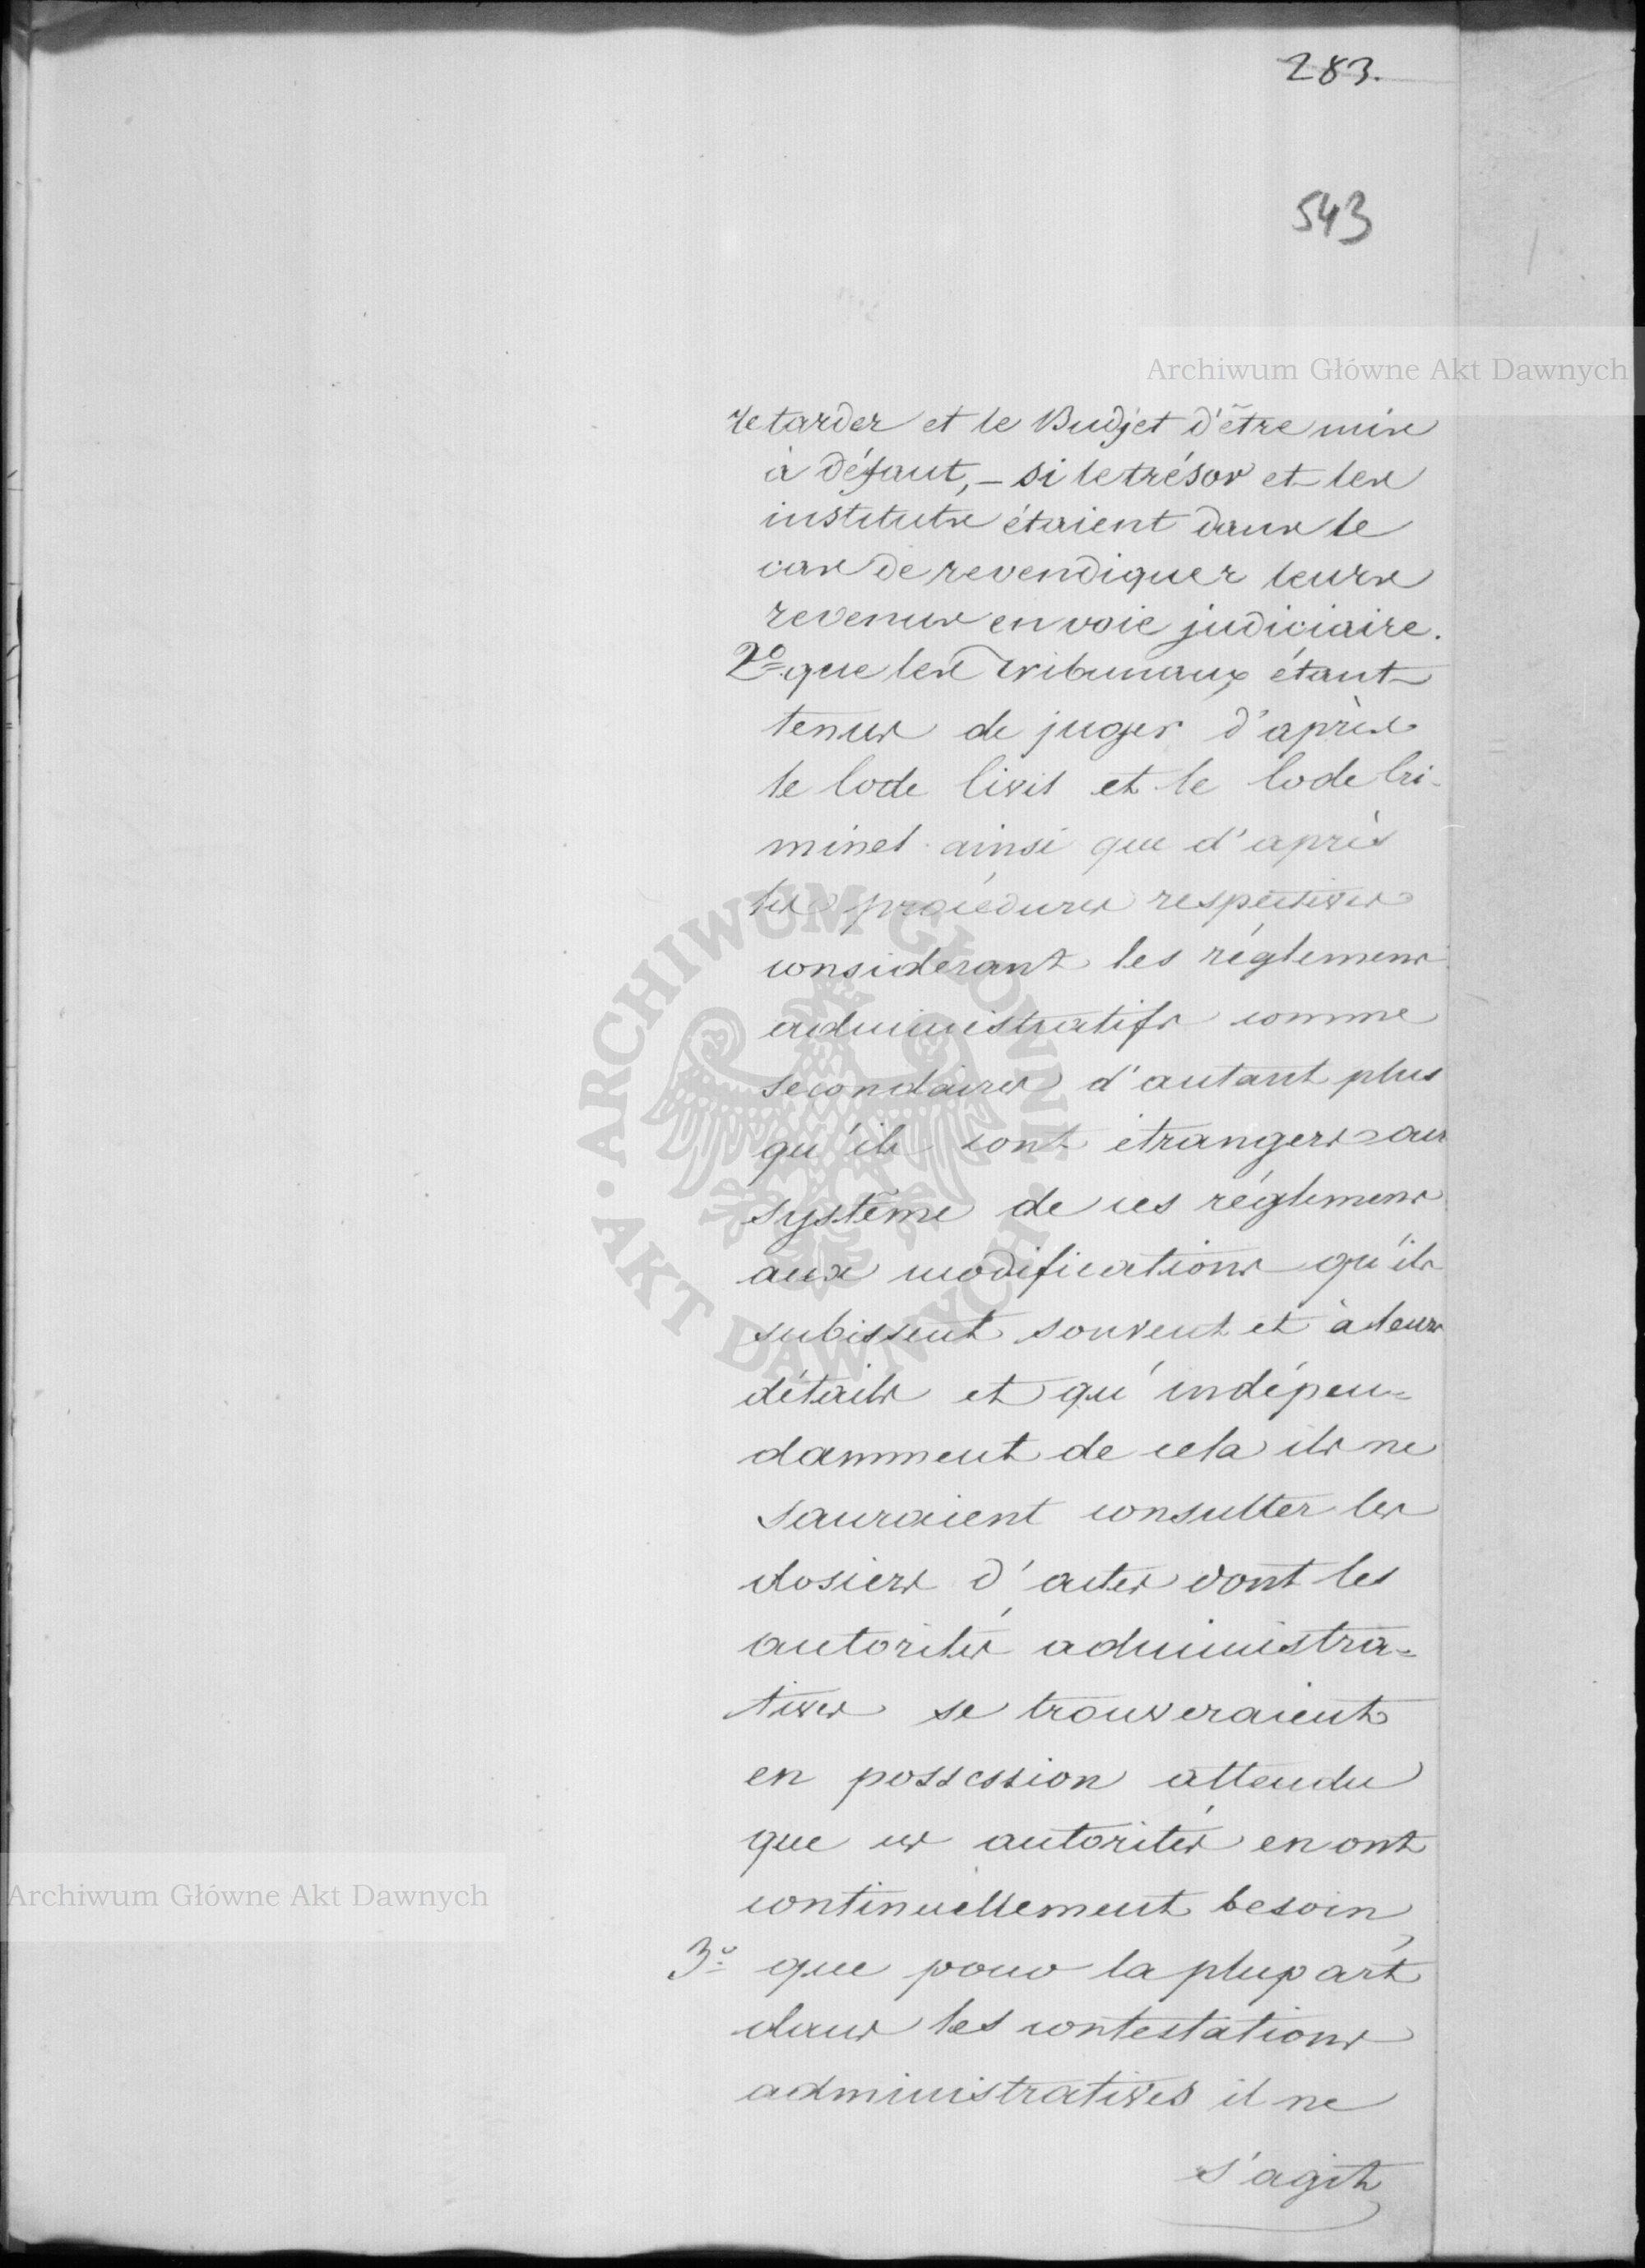 283.
543
Archiwum Główne Akt Dawnych
retarder et le Budjet d'être mis
à défaut, – si le trésor et les
instituts étaient dans le
cas de revendiquer leurs
revenus en voie judiciaire.
2º que les Tribunaux étant
tenus de juger d'après
le Code Civil et le Code Cri-
minel ainsi que d'après
les procédures respectives
considerant les réglemens
administratifs comme
secondaires d'autant plus
qu'ils sont étrangers au
système de ces réglemens
aux modifications qu'ils
subissent souvent et à leurs
détails et qu'indépen=
damment de cela ils ne
sauraient consulter les
dosiers d'actes dont les
autorités administra=
tives se trouveraient
en possession attendu
que ces autorités en ont
continuellement besoin,
3º que pour la plupart
dans les contestations
administratives il ne
s'agit
ARCHIWUM GŁÓWNE
AKT DAWNYCH
Archiwum Główne Akt Dawnych